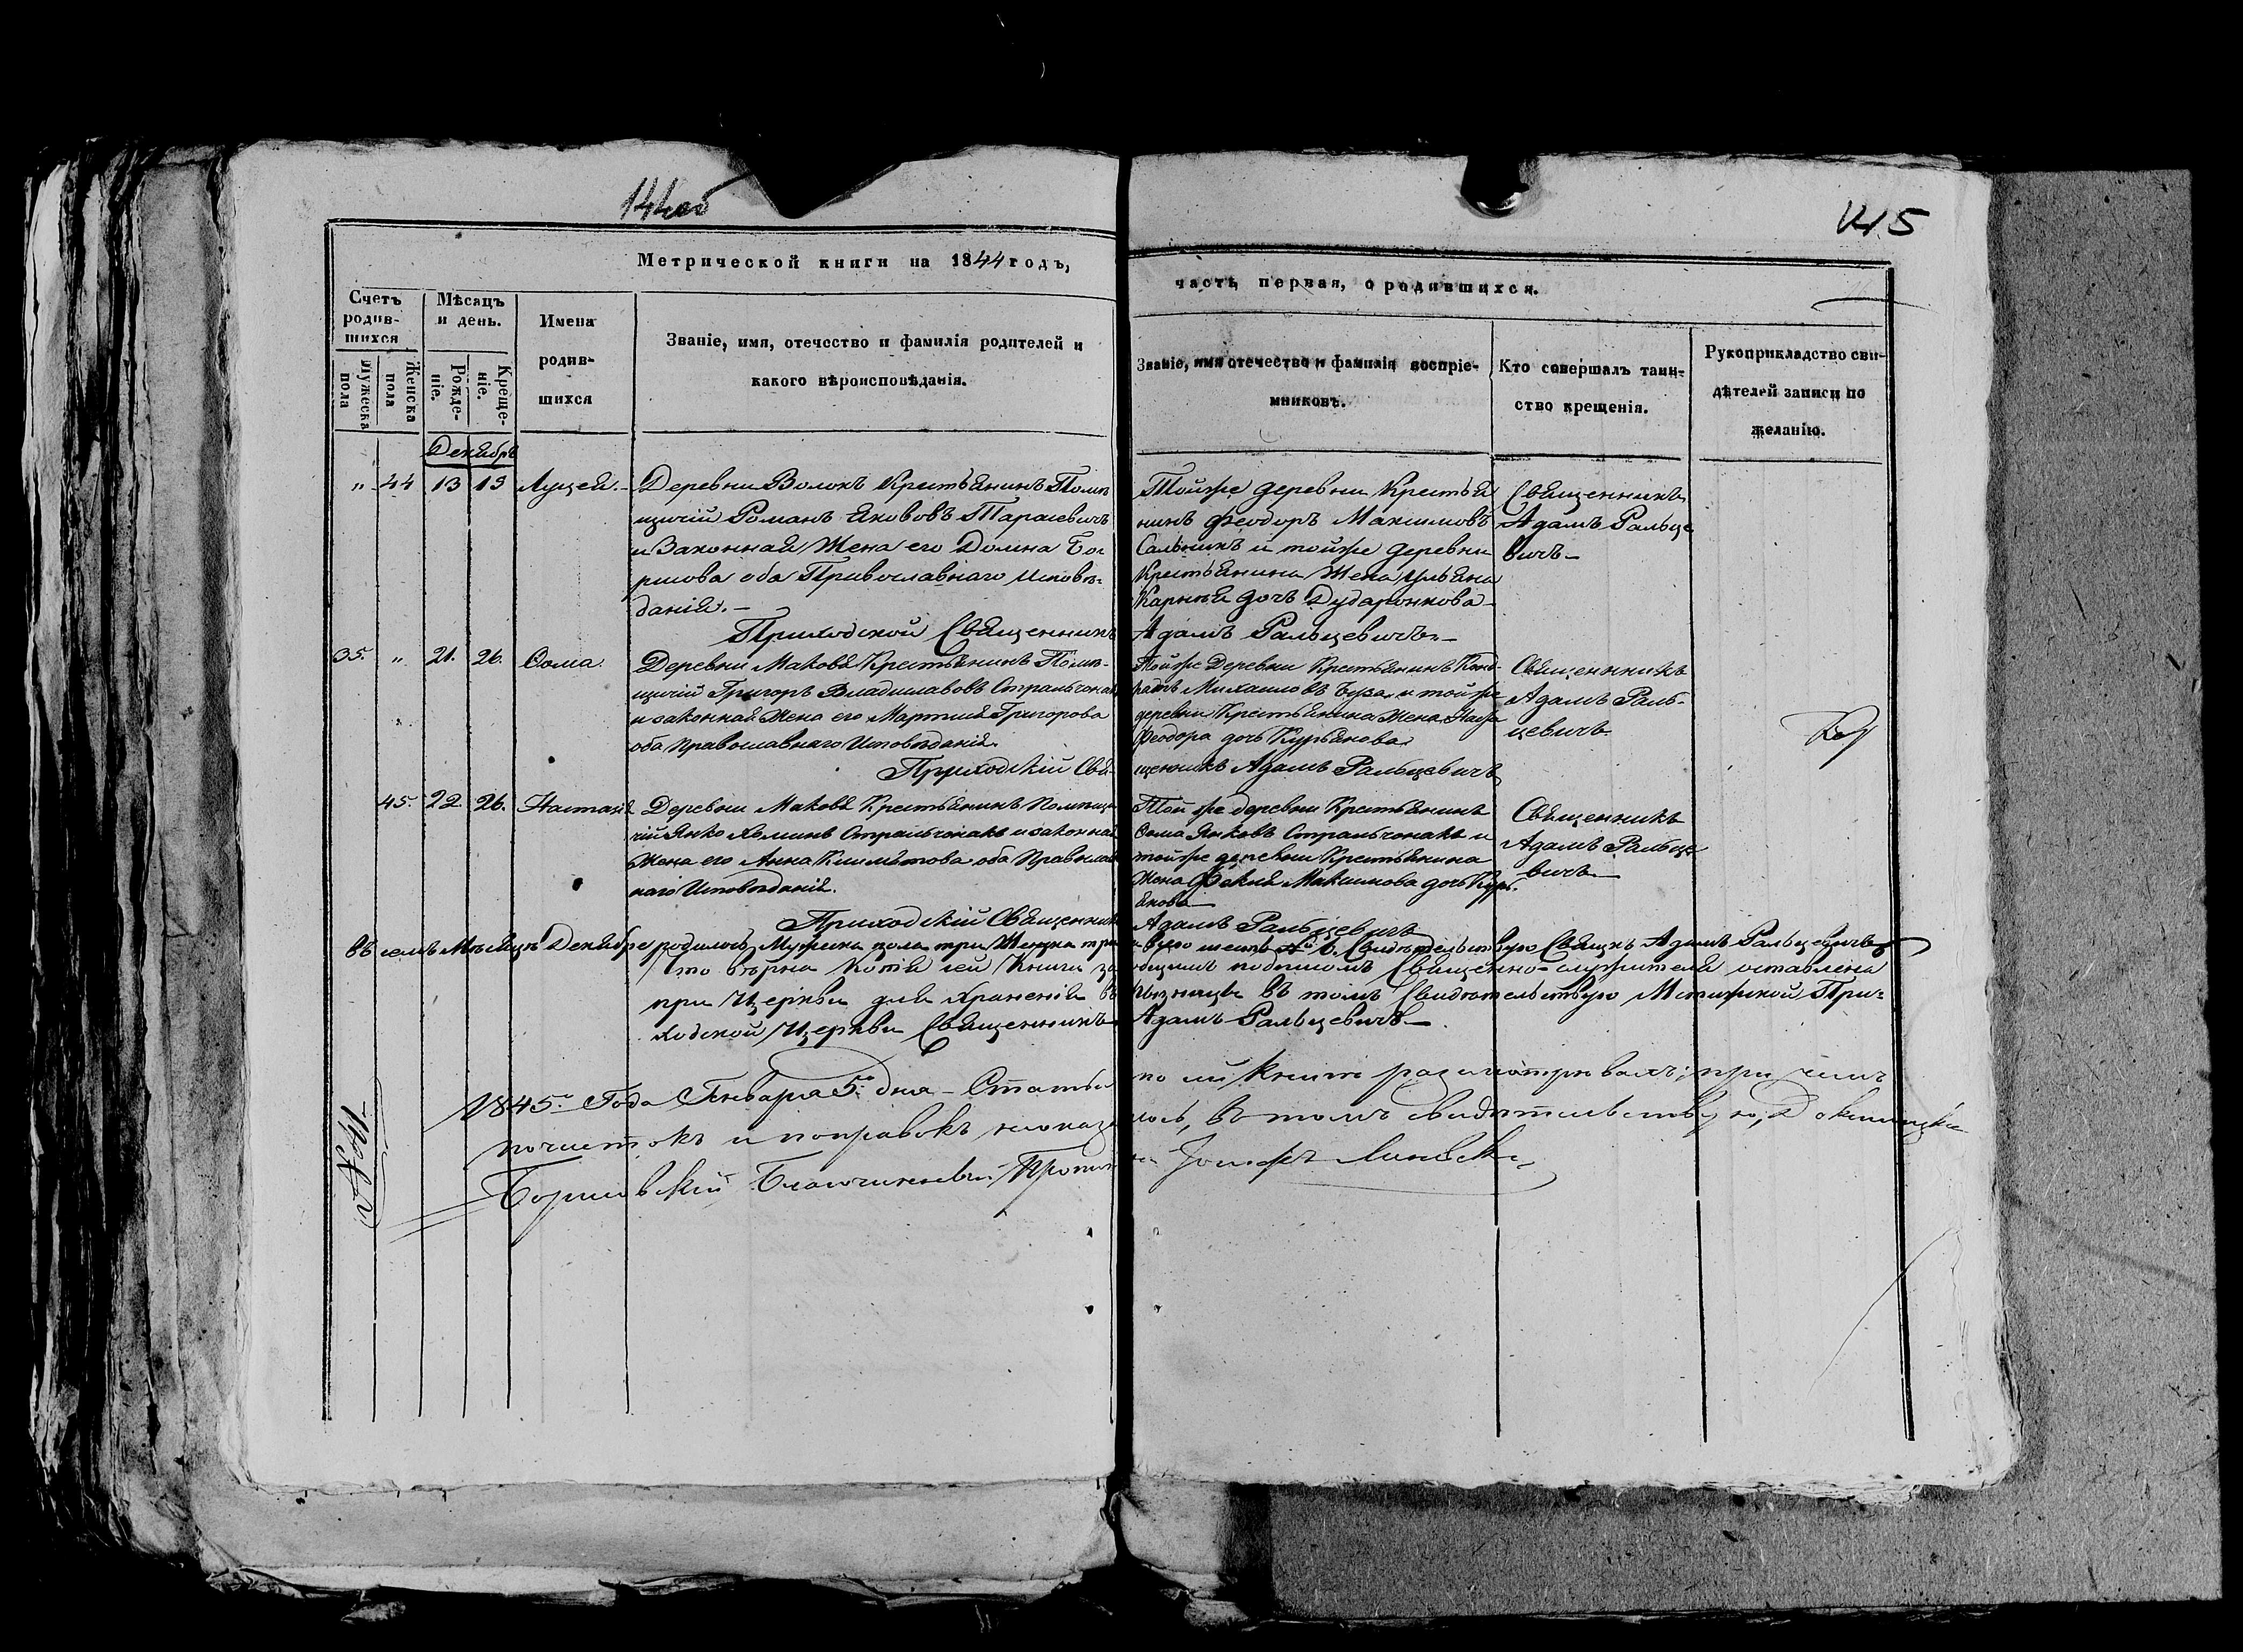 144об
145
Метрической книги на 1844 годъ,
часть первая, о родившихся.
Счетъ родив-
шихся
Мужеска пола
Женска пола
Мѣсяцъ и день.
Рожде-
ніе.
Креще-
ніе.
Имена
родив-
шихся
Званіе, имя, отечество и фамилія родителей и
какого вѣроисповѣданія.
Званіе, имя отечество и фамилія воспріе-
мниковъ.
Кто совершалъ таин-
ство крещенія.
Рукоприкладство сви-
дѣтелей записи по
желанію.
Декабрь
" 44 13 13
Деревни Волокъ Крестьянинъ Помѣ
щичій Романъ Якововъ Тарасевичъ
и Законная Жена его Домна Бо
рисова оба Православнаго Исповѣ-
данія.-
Тойже деревни Крестья
нинъ Феодоръ Максимовъ
Сальникъ и тойже деревни
Крестьянина Жена Ульяна
дочь Дударонкова
Священникъ
Адамъ Ральце
вичъ-
Приходской Священникъ Адамъ Ральцевичъ-
35. " 21. 26. Ѳома.
Деревни Маковья Крестьянинъ Помѣ-
щичій Григоръ Владиславовъ Стральчонакъ
и законная Жена его Григорова
оба Православнаго Исповѣданія.
Тойже Деревни Крестьянинъ Конд-
ратъ Михаиловъ и тойже
деревни Крестьянина Жена
Феодора дочь Курьянова
Священникъ
Адамъ Раль-
цевичъ
Приходскій Свя-
щенникъ Адамъ Ральцевичъ
45. 22. 26. Настасія
Деревни Маковья Крестьянинъ Помѣщи
чій Янко Стральчонакъ и законная
Жена его Анна оба Православ
наго Исповѣданія.
Той же деревни Крестьянинъ
Ѳома Янковъ Стральчонакъ и
тойже деревни Крестьянина
Жена Максимова дочь Курь-
янова
Священникъ
Адамъ Ральце
вичъ
Приходскій Священникъ Адамъ Ральцевичъ
Въ семъ Мѣсяцѣ Декабре родилось Мужеска пола три Женска три а всего шесть 6. Свидѣтельствую Адамъ Ральцевичъ
Что вѣрна Копія сей Книги за общимъ подписомъ Священно-служителя оставлена
при Церкви для храненія въ Ризницѣ въ томъ Свидѣтельствую При-
ходской Церкви Священникъ Адамъ Ральцевичъ
1845. Года Генваря 5. дня - Статьи по сей книгѣ разсматривалъ; при чемъ
почистокъ и поправокъ неоказалось, въ томъ свидѣтельствую,
Борисовскій Благочинный